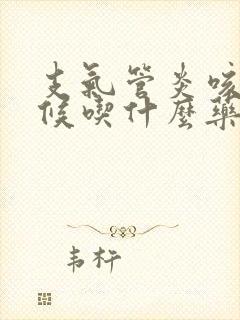 支氣管炎咳
候喫什麼藥
韦杆